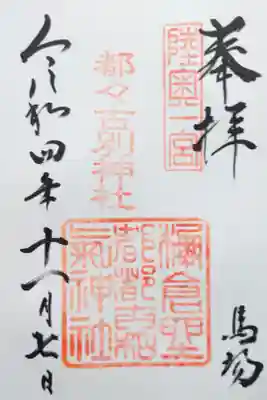 奉拝
陸奥一宮
馬場
都々古別神社
棚倉坐
都都古和
氣神社
令和四年十一月七日